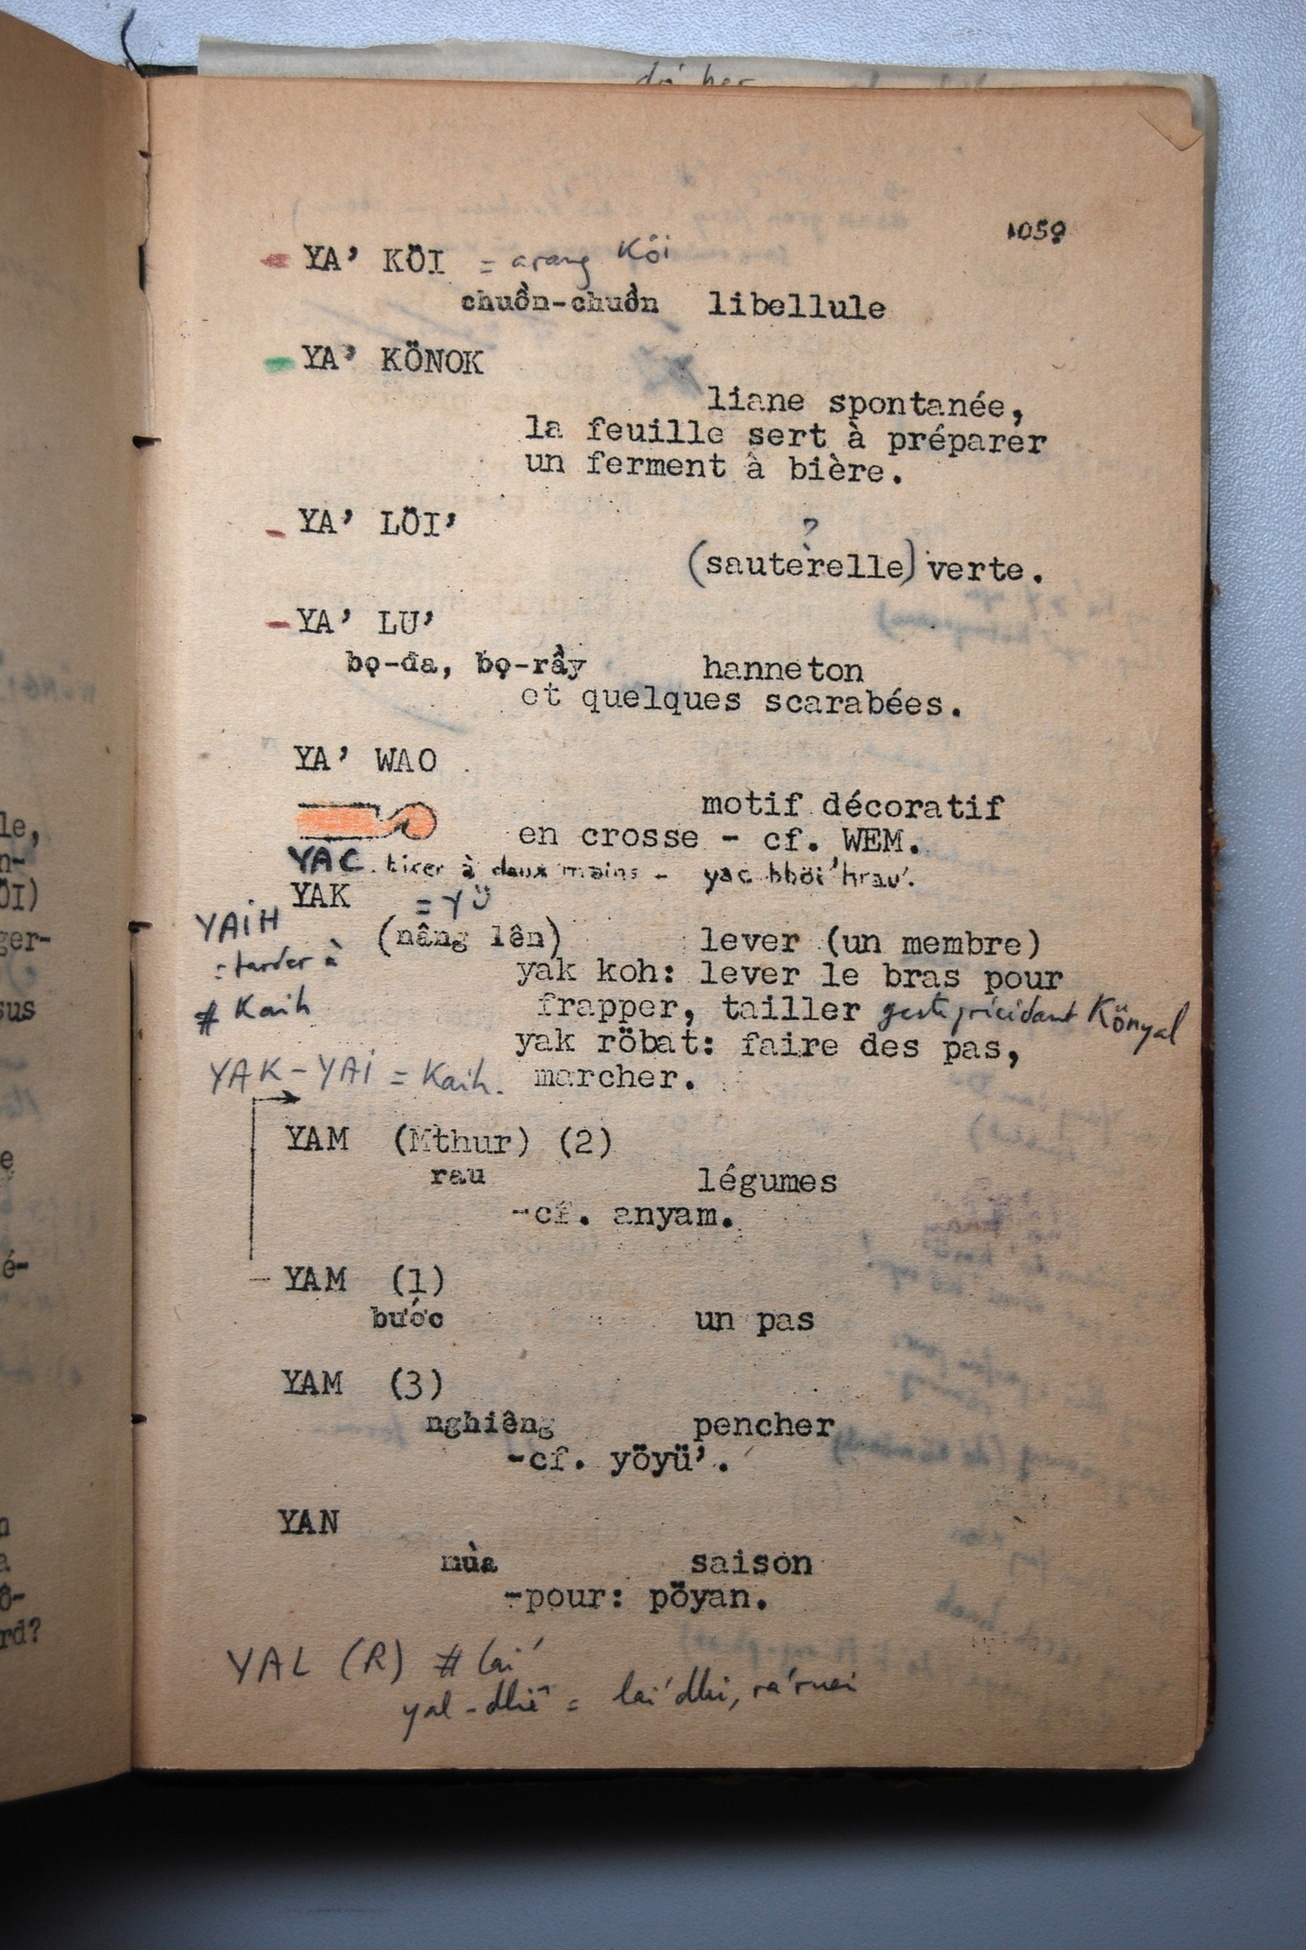 1059
YA' KÖI = arang Köi
chuồn-chuồn libellule
YA' KÖNOK
liane spontanée,
la feuille sert à préparer
un ferment à bière.
YA' LÖI'
?
(sauterelle) verte.
YA' LU'
bọ-da, bọ-rầy hanneton
et quelques scarabées.
YA' WAO
motif décoratif
en crosse - cf. WEM.
YAC. tirer à deux mains - yac bböi'hrau'.
YAK = Yü
YAIH
(nâng lên) lever (un membre)
: tarder à
yak koh: lever le bras pour
# Kaih
frapper, tailler geste précédant Könyal
yak röbat: faire des pas,
YAK-YAI = Kaih. marcher.
YAM (Mthur) (2)
rau légumes
-cf. anyam.
YAM (1)
bước un pas
YAM (3)
nghiêng pencher
-cf. yöyü'.
YAN
mùa saison
-pour: pöyan.
YAL (R) # lai'
yal-dhiê = lai'dhi, ra'ruei
le,
n-
ÖI)
ger-
sus
e
é-
n
a
ô-
rd?